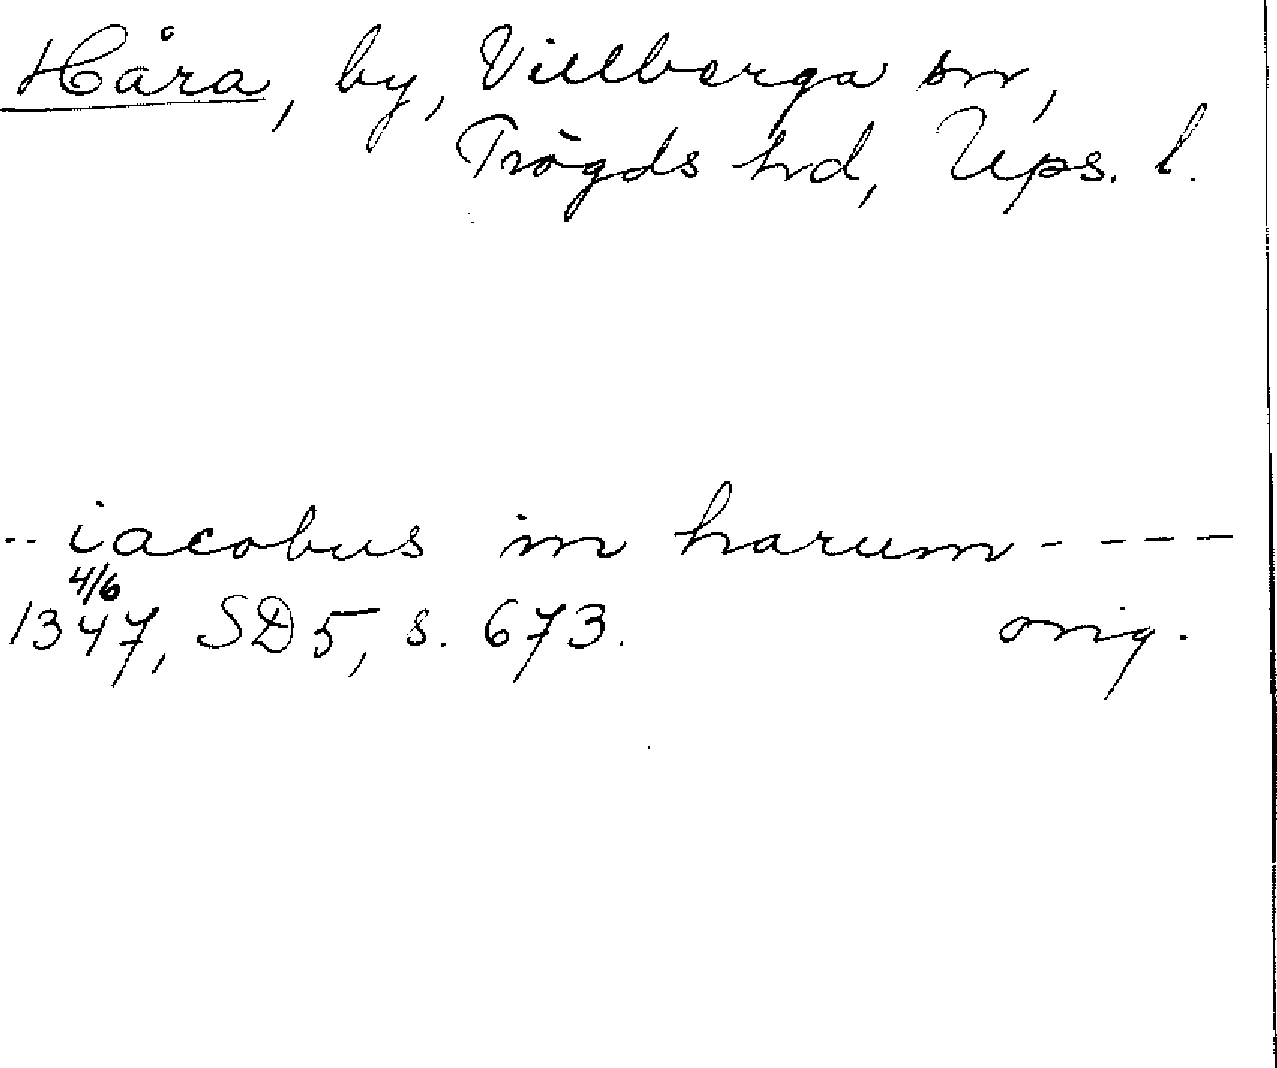 Håra, by, Villberga sn,
Trögds hd, Ups. l.
-- iacobus in harum ----
4/6
1347, SD 5, s. 673. orig.